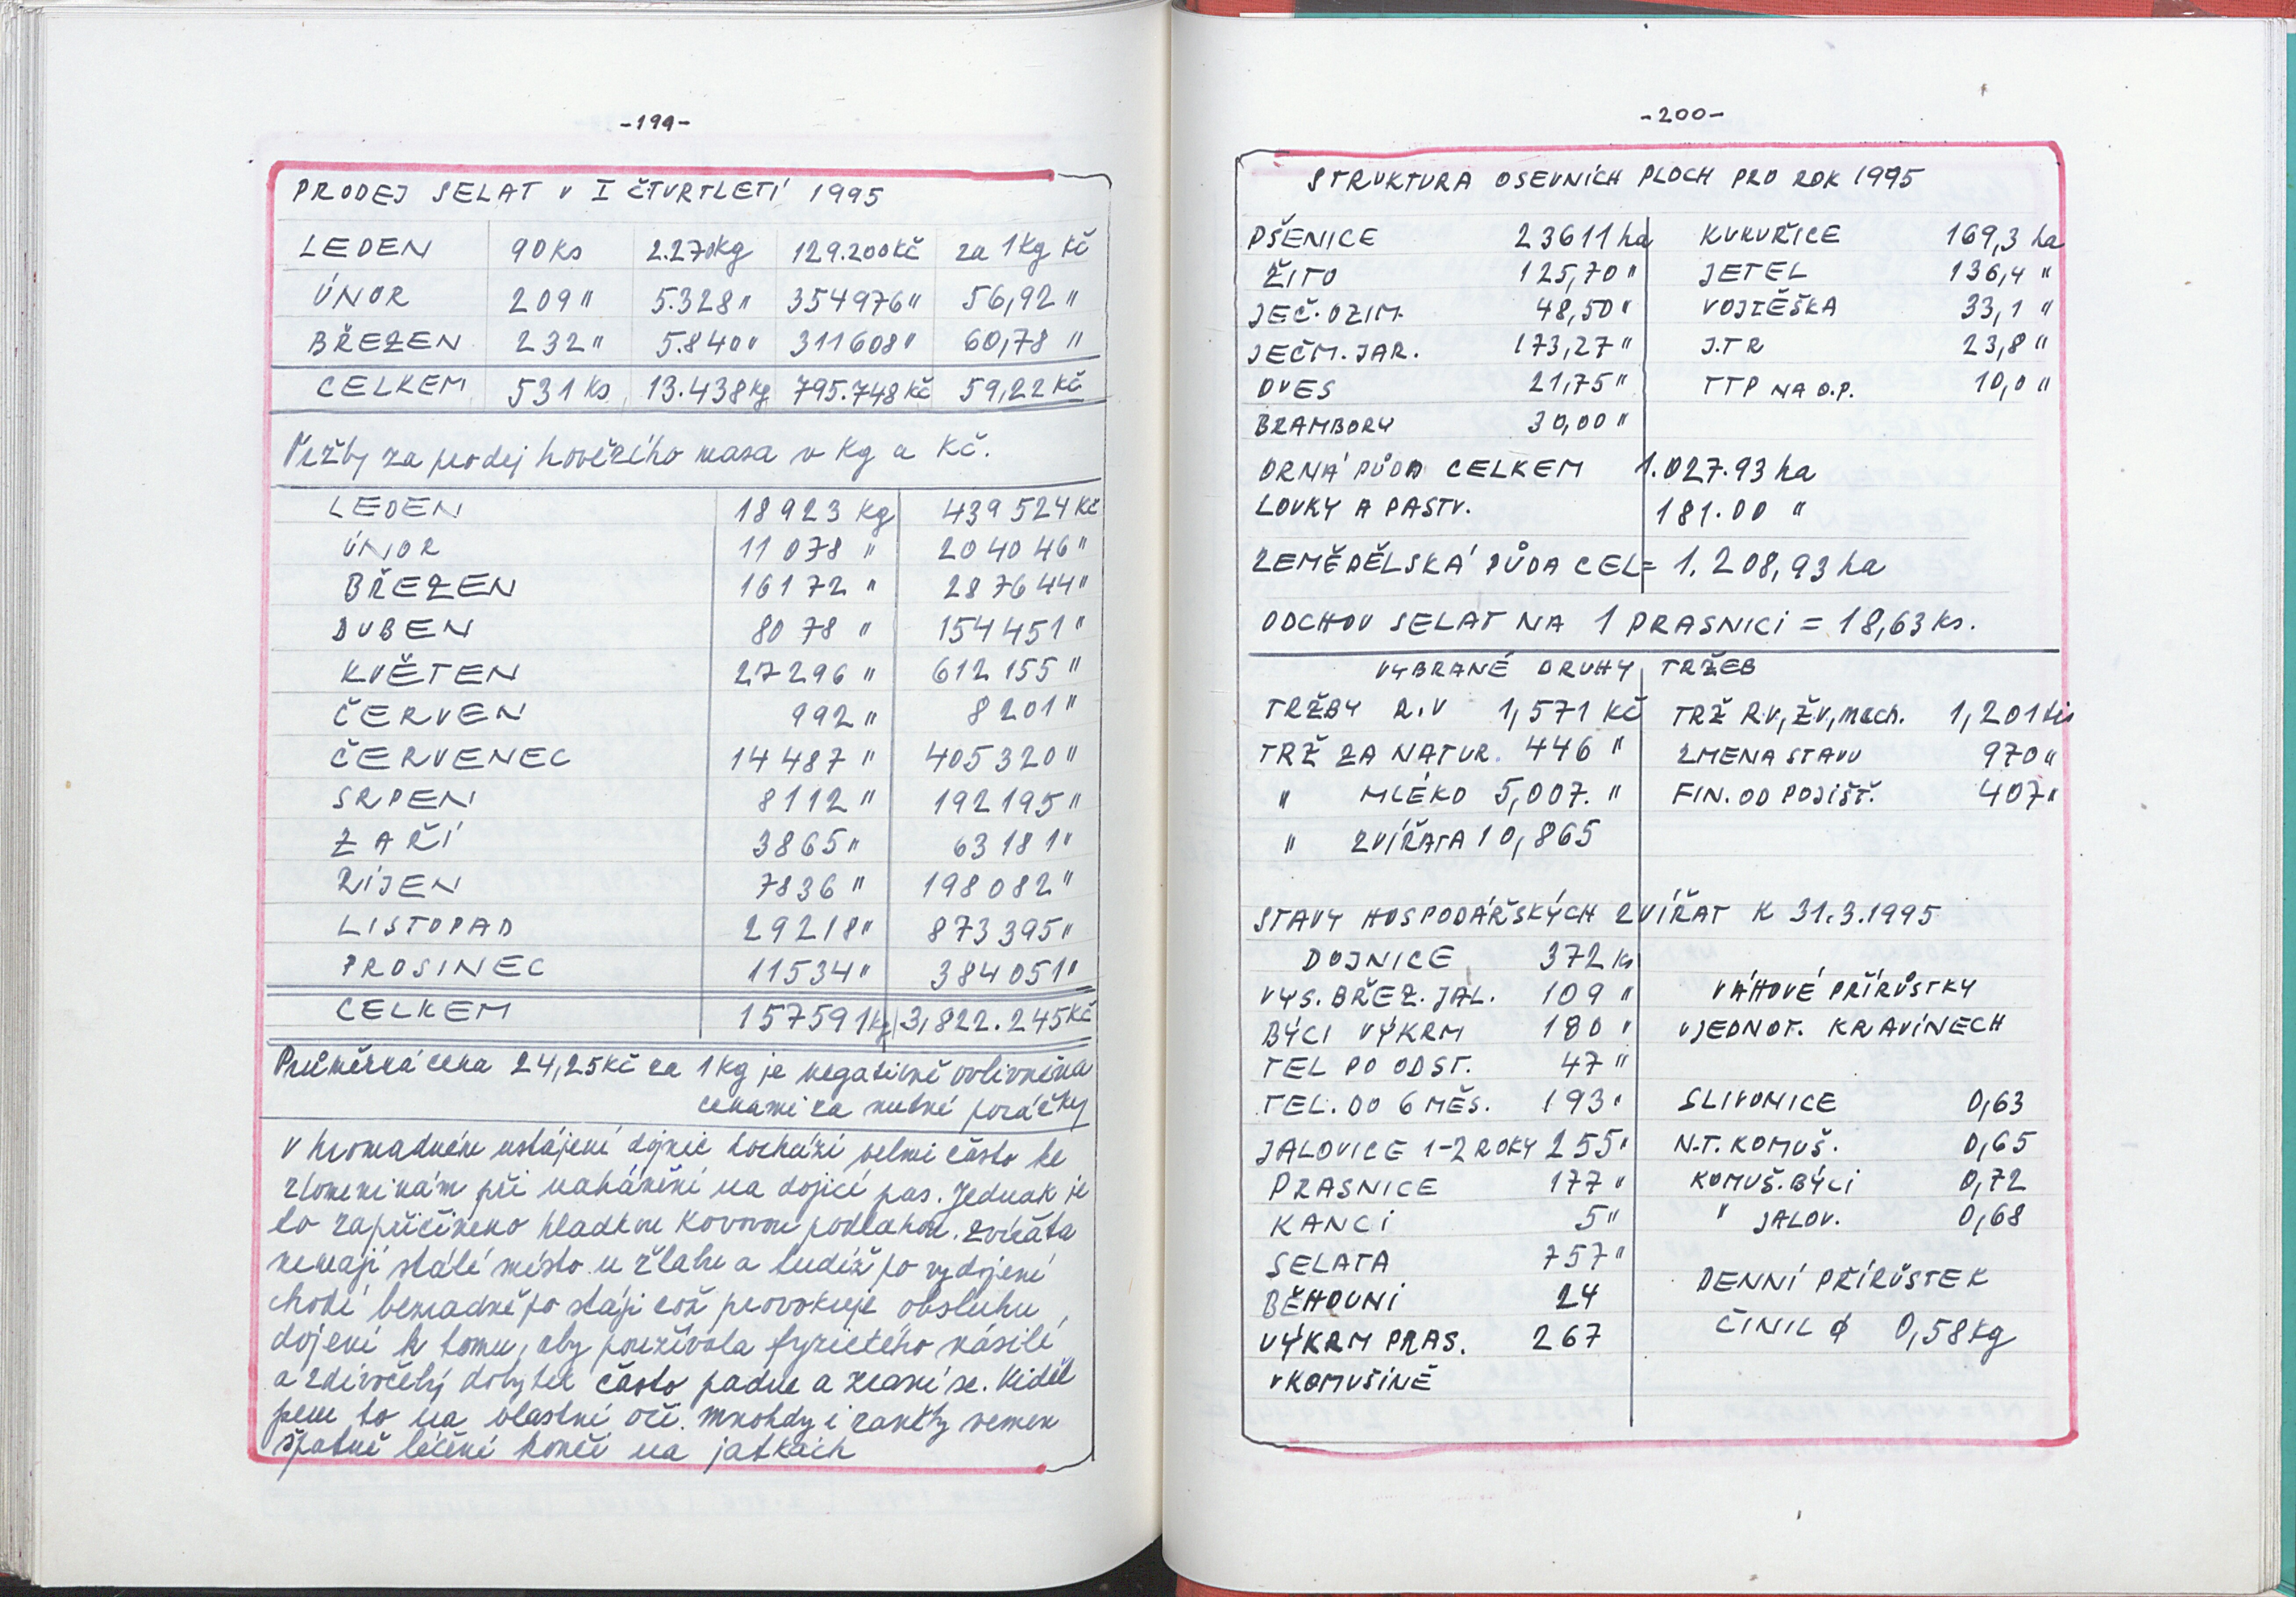 -199-
PRODEJ SELAT V I ČTVRTLETÍ 1995
LEDEN 90 ks 2.270kg 129.200Kč za 1kg Kč
ÚNOR 209 " 5.328 " 354976 " 56,92 "
BŘEZEN 232 " 5.840 " 311608 " 60,78 "
CELKEM 531 ks 13.438kg 795.748Kč 59,22 Kč
Tržby za prodej hovězího masa v Kg a Kč.
LEDEN 18923 kg 439524 Kč
ÚNOR 11078 " 204046 "
BŘEZEN 16172 " 287644 "
DUBEN 8078 " 154451 "
KVĚTEN 27296 " 612155 "
ČERVEN 992 " 8201 "
ČERVENEC 14487 " 405320 "
SRPEN 8112 " 192195 "
ZAŘÍ 3865 " 63181 "
ŘÍJEN 7836 " 198082 "
LISTOPAD 29218 " 873395 "
PROSINEC 11534 " 384051 "
CELKEM 157591kg 3,822.245Kč
Průměrná cena 24,25Kč za 1kg je negativně ovlivněna
cenami za nutné porážky
V hromadném ustájení dojnic dochází velmi často ke
zlomeninám při nahánění na dojicí pas. Jednak je
to zapříčineno hladkou kovovou podlahou. Zvířata
nemají stálé místo u žlabu a tudíž po vydojení
chodí bezradně po stáji což provokuje obsluhu,
dojení k tomu, aby používala fyzického násilí
a zdivočelý dobytek často padne a zraní se. Viděl
jsem to na vlastní oči. Mnohdy i záněty vemen
špatně léčené končí na jatkách
-200-
STRUKTURA OSEVNÍCH PLOCH PRO ROK 1995
PŠENICE 23611 ha KUKUŘICE 169,3 ha
ŽITO 125,70 " JETEL 136,4 "
JEČ. OZIM. 48,50 " VOJTĚŠKA 33,1 "
JEČM. JAR. 173,27 " J.TR 23,8 "
OVES 21,75 " TTP NA O.P. 10,0 "
BRAMBORY 30,00 "
ORNÁ PŮDA CELKEM 1.027.93 ha
LOUKY A PASTV. 181.00 "
ZEMĚDĚLSKÁ PŮDA CEL = 1.208,93 ha
ODCHOV SELAT NA 1 PRASNICI = 18,63 ks.
VYBRANÉ DRUHY TRŽEB
TRŽBY R.V 1,571 Kč TRŽ R.V, Ž.V, mech. 1,201 tis
TRŽ ZA NATUR. 446 " ZMENA STAVU 970 "
" MLÉKO 5,007. " FIN. OD POJIŠŤ. 407 "
" ZVÍŘATA 10,865
STAVY HOSPODÁŘSKÝCH ZVÍŘAT K 31.3.1995
DOJNICE 372 ks
VYS. BŘEZ. JAL. 109 " VÁHOVÉ PŘÍRŮSTKY
BÝCI VÝKRM 180 " V JEDNOT. KRAVÍNECH
TEL PO ODST. 47 "
TEL. DO 6 MĚS. 193 " SLIVONICE 0,63
JALOVICE 1-2 ROKY 255 " N.T. KOMUŠ. 0,65
PRASNICE 177 " KOMUŠ. BÝCI 0,72
KANCI 5 " " JALOV. 0,68
SELATA 757 "
BĚHOUNI 24 DENNÍ PŘÍRŮSTEK
VÝKRM PRAS. 267 ČINIL ∅ 0,58 kg
V KOMUŠÍNĚ